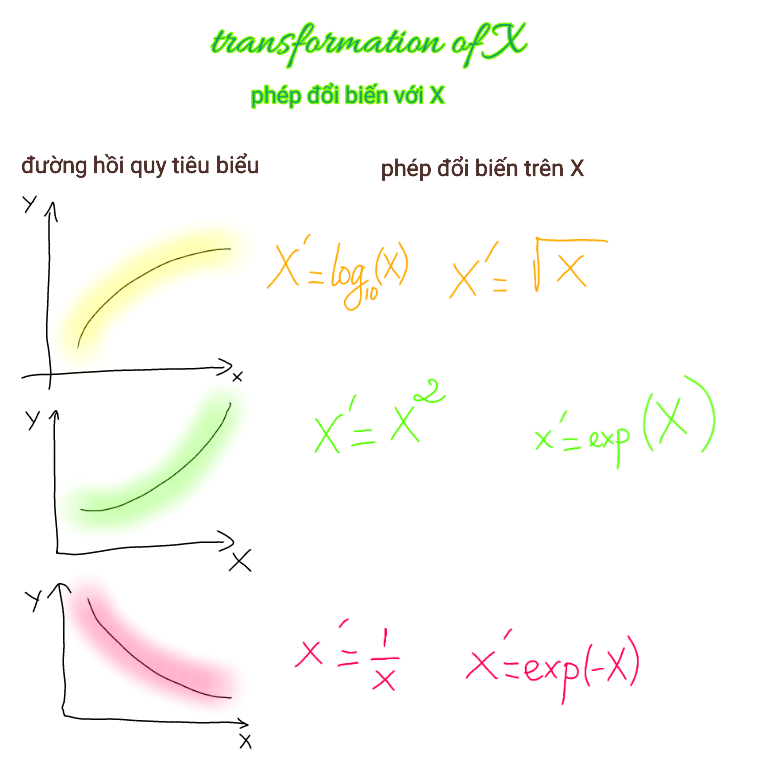 transformation of X
phép đổi biến với X
đường hồi quy tiêu biểu
phép đổi biến trên X
Y
X
X' = log₁₀(X)
X' = √X
Y
X
X' = X²
x' = exp(X)
Y
X
X' = 1/X
X' = exp(-X)